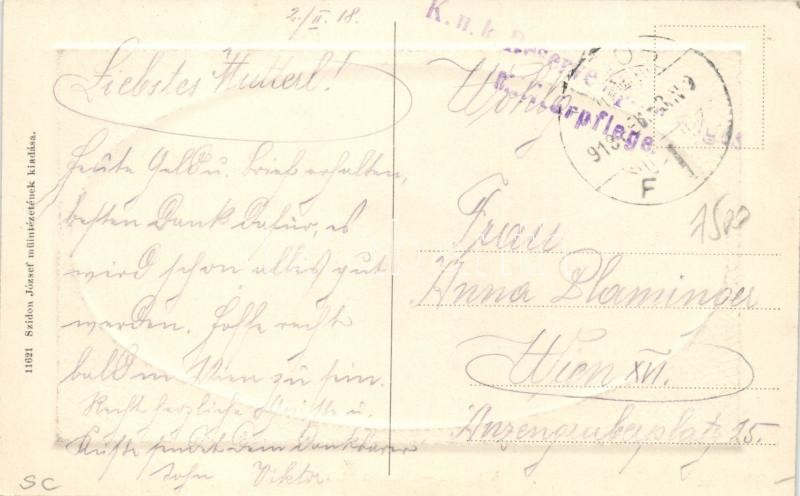 2./II. 18.
Liebstes Mutterl!
Heute Geld u. Brief erhalten,
besten Dank dafür, es
wird schon alles gut
werden. Hoffe recht
bald in Wien zu sein.
Recht herzliche Grüße u.
Küsse sendet dein Dankbarer
Sohn Viktor.
K. u. k. Reserve
Krankenpflege
918
F
1500
Frau
Anna Plaminger
Wien XVI.
Anzengruberplatz 25.
11621 Szidon József műintézetének kiadása.
SC